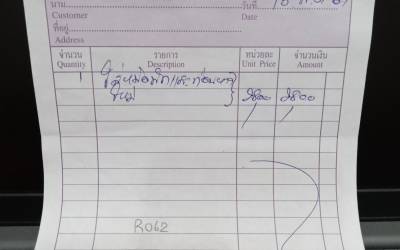 นาม
วันที่
Customer
Date
ที่อยู่
Address
จำนวน รายการ หน่วยละ จำนวนเงิน
Quantity Description Unit Price Amount
1
ใหม่ 2800 2800
R062